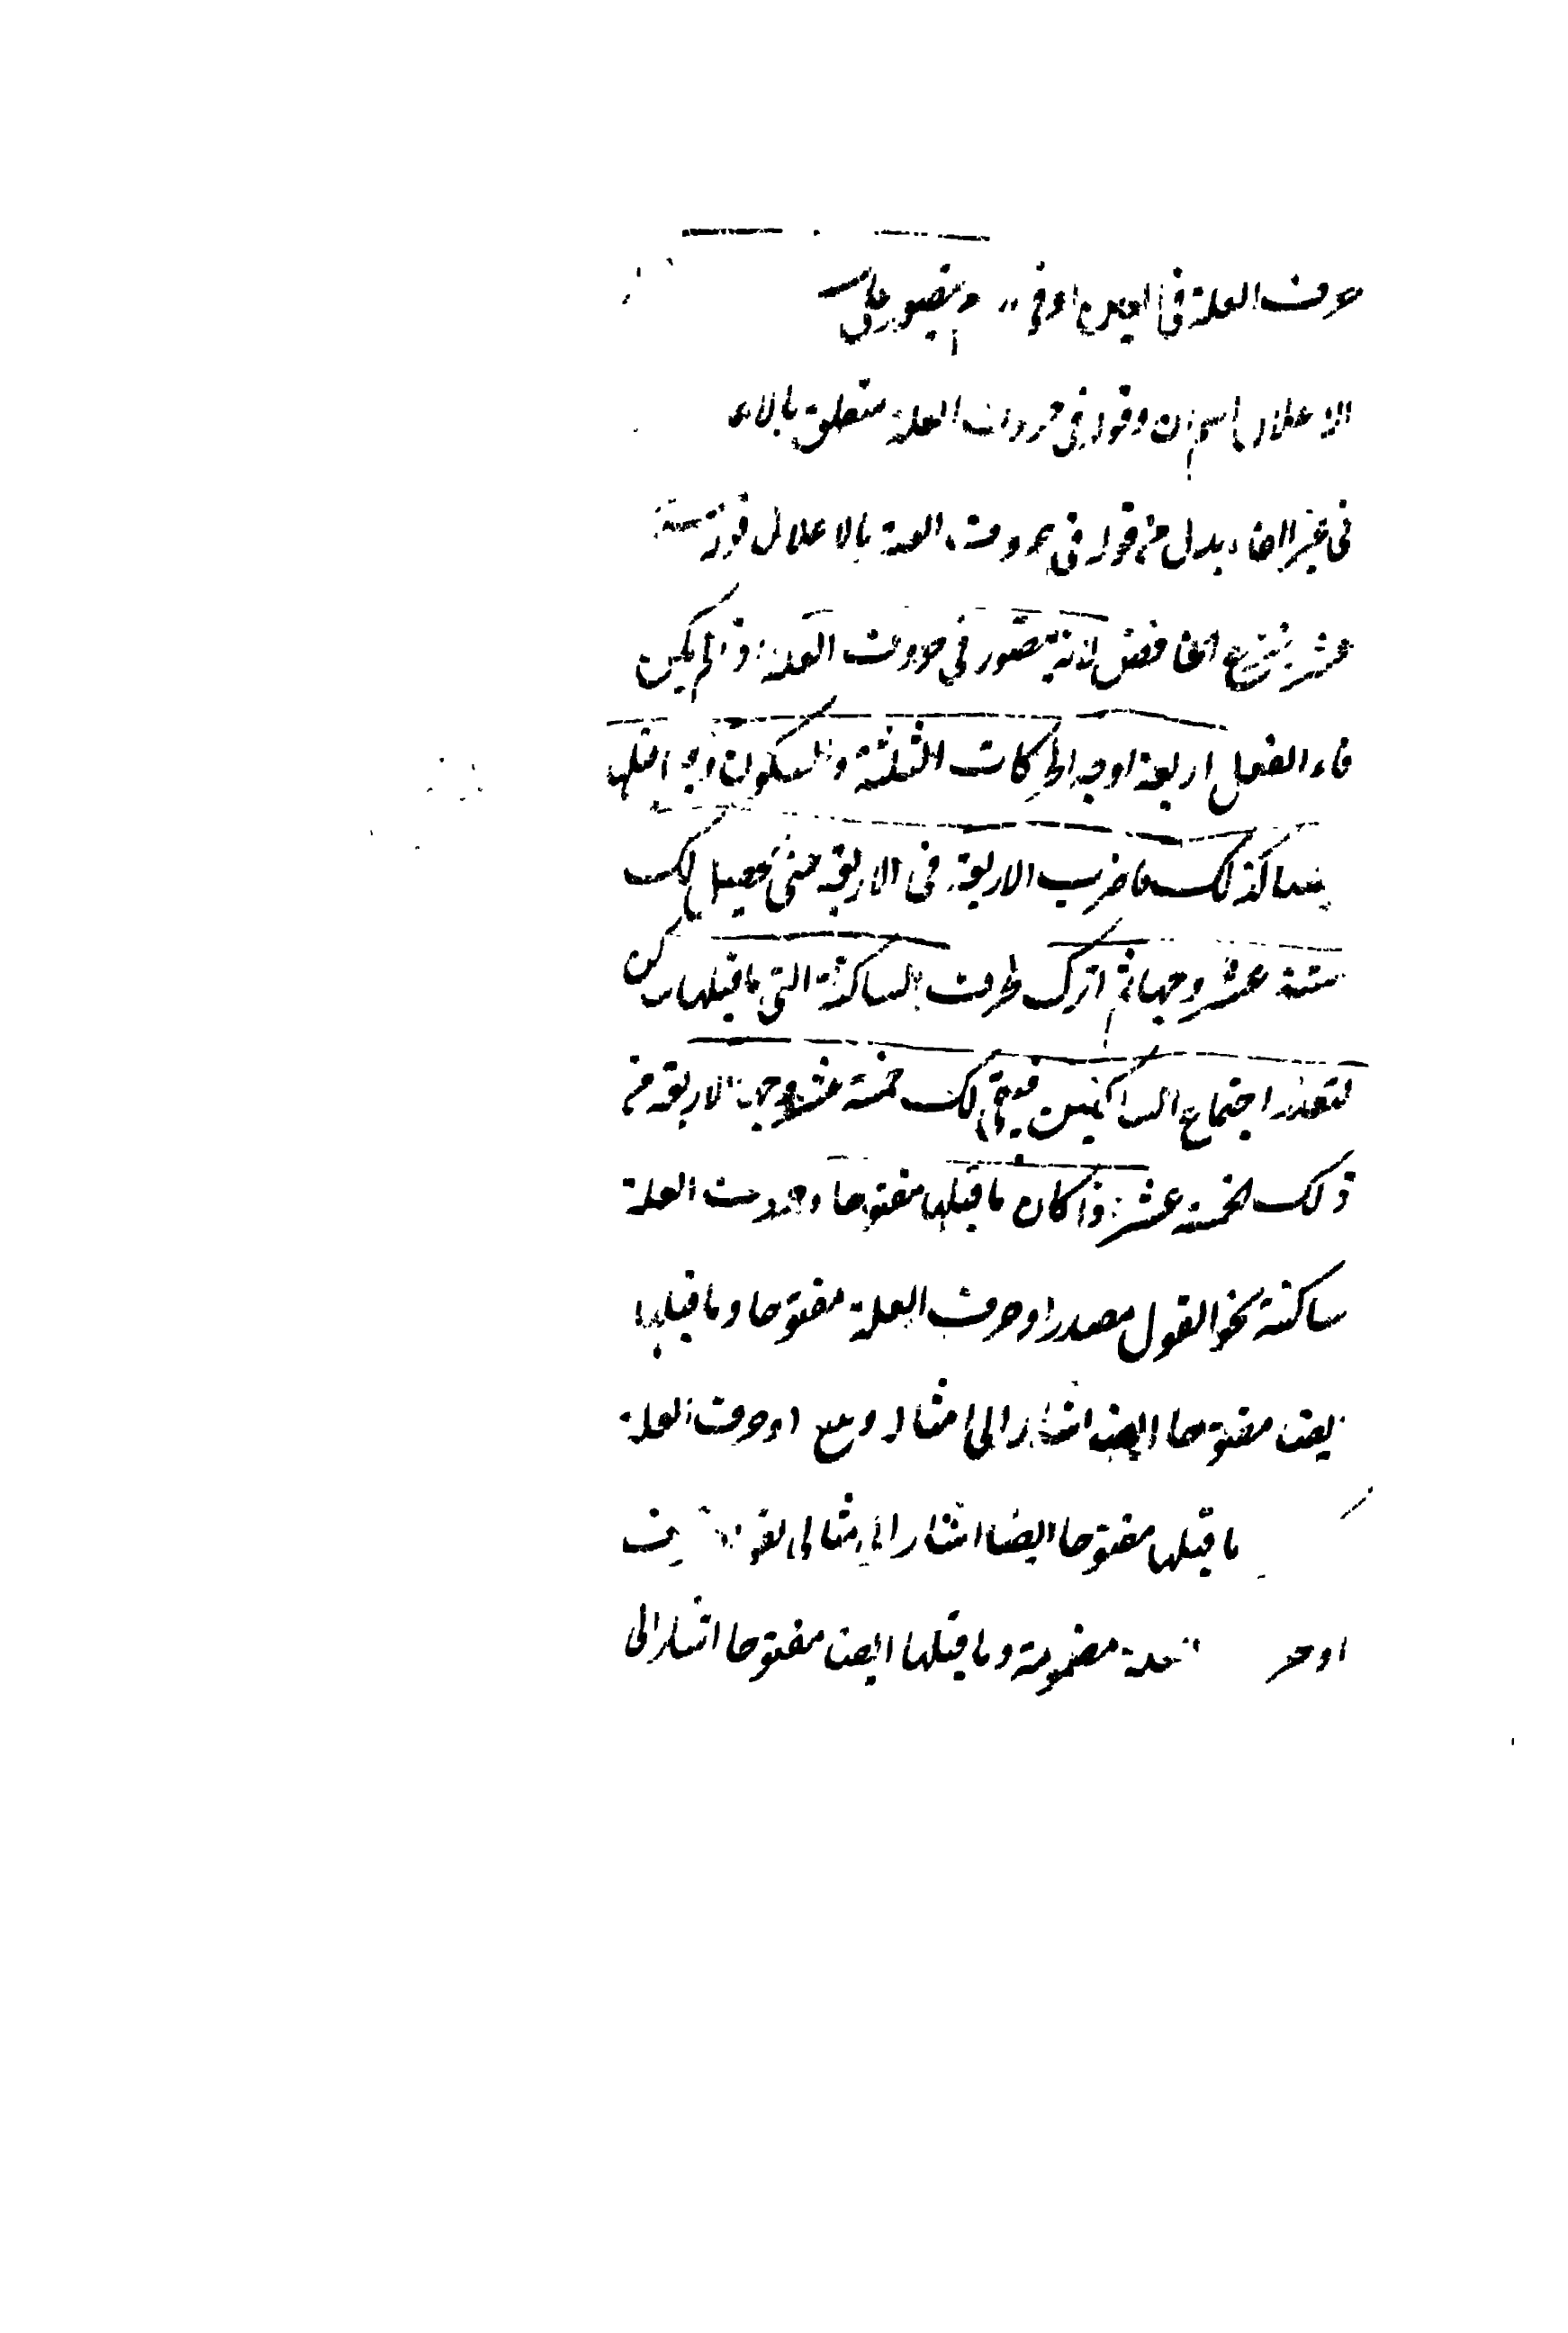 حرف العلة فى العين او فى و يتصور على
الاعلال اسم ان وقوله فى حروف العلة متعلق بالاعلا
فى غير الفاء بدل من قوله فى حروف العلة بالاعلال قوله ستة
عشر بنزع الخافض لانه يتصور فى حروف العلة اذ لم يكن
فاء الفعل اربعة اوجه الحركات الثلثة والسكون وما قبلها
كذلك فاضرب الاربعة فى الاربعة حتى يحصل لك
ستة عشر وجها ثم اترك حرف الساكنة التى ما قبلها ساكن
لتعذر اجتماع الساكنين فيبقى لك خمسة عشر وجها الاربعة من
ذلك الخمسة عشر اذا كان ما قبلها مفتوحا وحروف العلة
ساكنة نحو القول مصدرا وحرف العلة مفتوحا وما قبلها
ايضا مفتوحا ايضا اشار الى مثاله وبيع او حرف العلة
ما قبلها مفتوحا ايضا اشار الى مثاله
او حر العلة مضمومة وما قبلها ايضا مفتوحا اشار الى